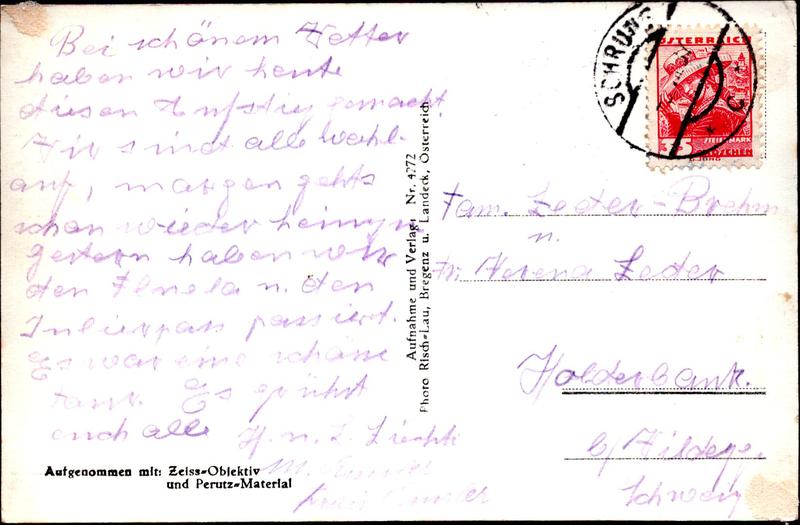 Bei schönem Wetter
haben wir heute
diesen Aufstieg gemacht.
Wir sind alle wohl-
auf, morgen gehts
schon wieder heimzu
gestern haben wir
den Flüela u. den
Julierpass passiert.
Es war eine schöne
Tour. Es grüsst
euch alle
H. u. L.
M.
Aufgenommen mit: Zeiss-Objektiv
und Perutz-Material
Aufnahme und Verlag: Nr. 4772
Photo Risch-Lau, Bregenz u. Landeck, Österreich
SCHRUNS
ÖSTERREICH
STEIERMARK
35 GROSCHEN
Fam. Zeder-Brehm
u.
Fr. Verena Zeder
Holderbank.
b/ Wildegg
Schweiz